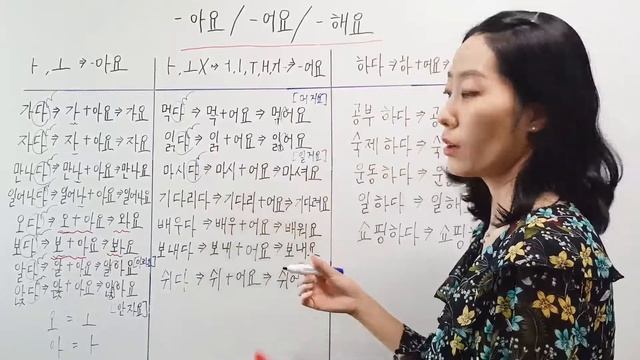 -아요/-어요/-해요
ㅏ,ㅗ⇒-아요
가다⇒가+아요⇒가요
자다⇒자+아요⇒자요
만나다⇒만나+아요⇒만나요
일어나다⇒일어나+아요⇒일어나요
오다⇒오+아요⇒와요
보다⇒보+아요⇒봐요
알다⇒알+아요⇒알아요
앉다⇒앉+아요⇒앉아요
[안자요]
오=ㅗ
아=ㅏ
ㅏ,ㅗX→ ⇒-어요
[머거요]
먹다⇒먹+어요⇒먹어요
읽다⇒읽+어요⇒읽어요
[일거요]
마시다⇒마시+어요⇒마셔요
기다리다⇒기다리+어요⇒기다려요
배우다⇒배우+어요⇒배워요
보내다⇒보내+어요⇒보내요
쉬다⇒쉬+어요⇒쉬어
하다⇒하+여요⇒
공부하다⇒
숙제하다⇒숙
운동하다⇒운
일하다⇒일해
쇼핑하다⇒쇼핑